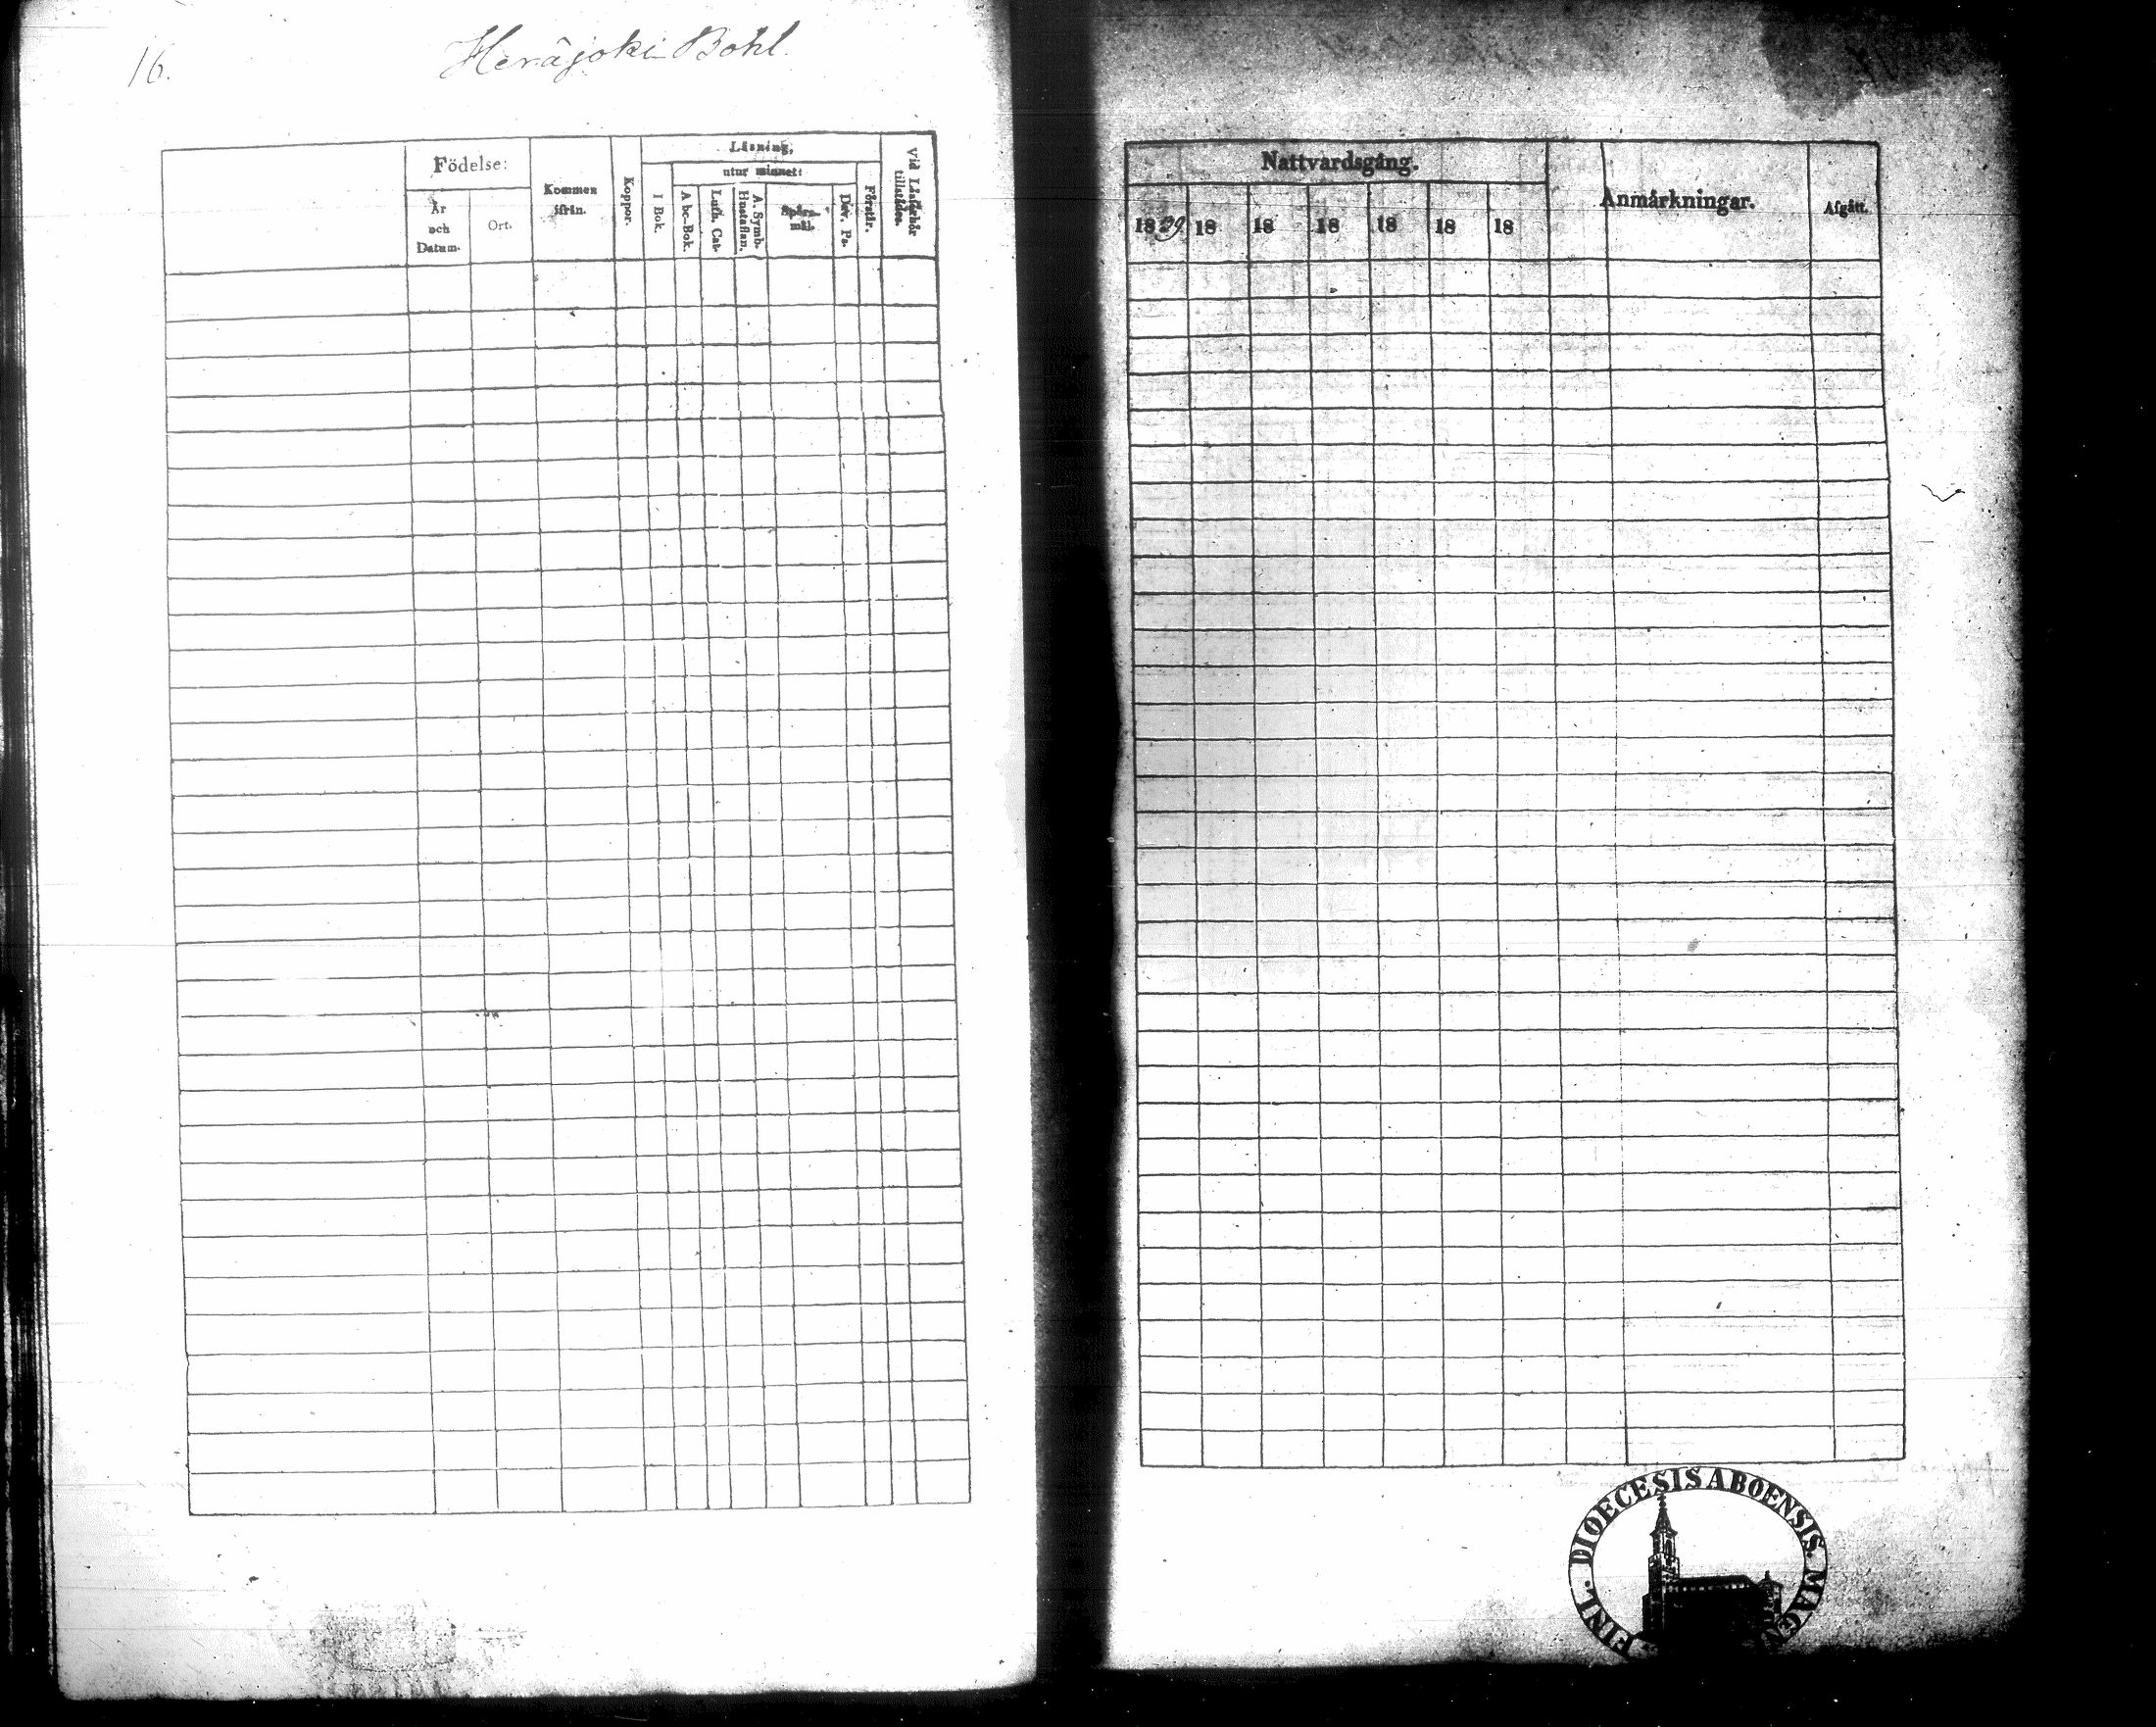 16.
Heräjoki Bohl.
Födelse:
År
och
Datum.
Ort.
Kommen
ifrån.
Koppor.
Läsning,
utur minnet:
I Bok.
A bc-Bok.
Luth. Cat.
A. Symb.
Hustaflan.
Spörs-
mål.
Dav. Ps.
Förstår.
Vid Läsförhör
tillstädes.
Nattvardsgång.
1829 18 18 18 18 18 18
Anmärkningar.
Afgått.
FINL. DIOECESIS ABOENSIS. MAGN